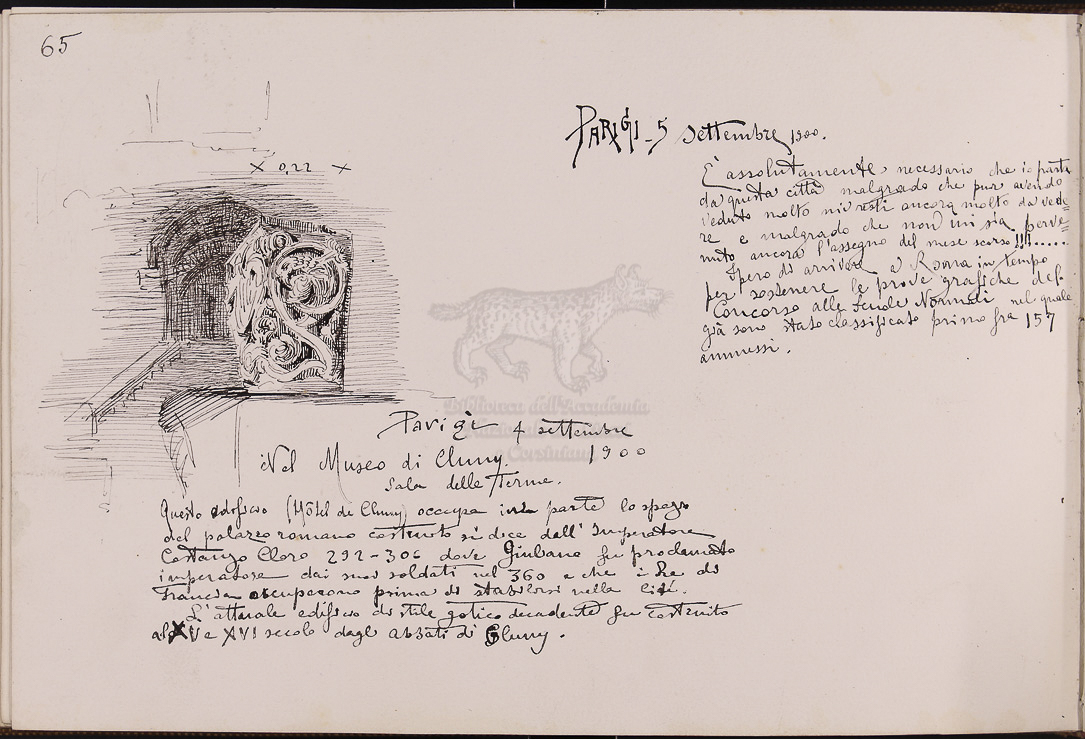 65
× 0,22 ×
Parigi 4 settembre
1900
Nel Museo di Cluny.
Sala delle Terme.
Questo edificio (Hôtel di Cluny) occupa in parte lo spazio
del palazzo romano costruito si dice dall'Imperatore
Costanzo Cloro 292-306 dove Giuliano fu proclamato
imperatore dai suoi soldati nel 360 e che i Re di
Francia occuparono prima di stabilirsi nella Cité.
L'attuale edificio di stile gotico decadente fu costruito
al XV e XVI secolo dagli abbati di Cluny.
Parigi - 5 settembre 1900.
È assolutamente necessario che io parta
da questa città malgrado che pur avendo
veduto molto mi resti ancora molto da vede=
re e malgrado che non mi sia perve=
nuto ancora l'assegno del mese scorso!!!!.....
Spero di arrivare a Roma in tempo
per sostenere le prove grafiche del
Concorso alle Scuole Normali nel quale
già sono stato classificato primo fra 157
ammessi.
Biblioteca dell'Accademia
Nazionale dei Lincei
e Corsiniana